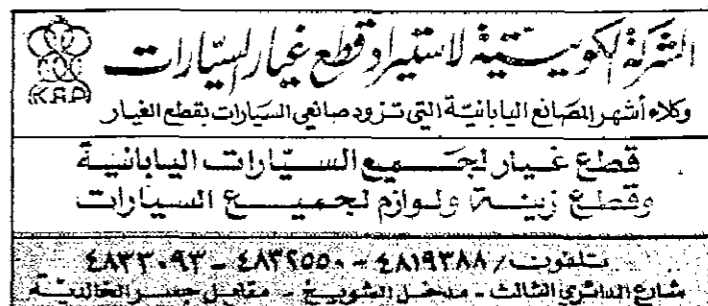 الشركة الكويتية لاستيراد قطع غيار السيارات
(K.A.P)
وكلاء أشهر المصانع اليابانية التي تزود صانعي السيارات بقطع الغيار
قطع غيار لجميع السيارات اليابانية
وقطع زينة ولوازم لجميع السيارات
تلفون/ ٤٨١٩٣٨٨ - ٤٨٣٢٥٥٠ - ٤٨٣٣٠٩٣
شارع الدائري الثالث - مدخل الشويخ - مقابل جسر الخالدية